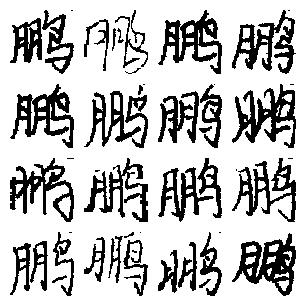 鹏鹏鹏鹏
鹏鹏鹏鹏
鹏鹏鹏鹏
鹏鹏鹏鹏